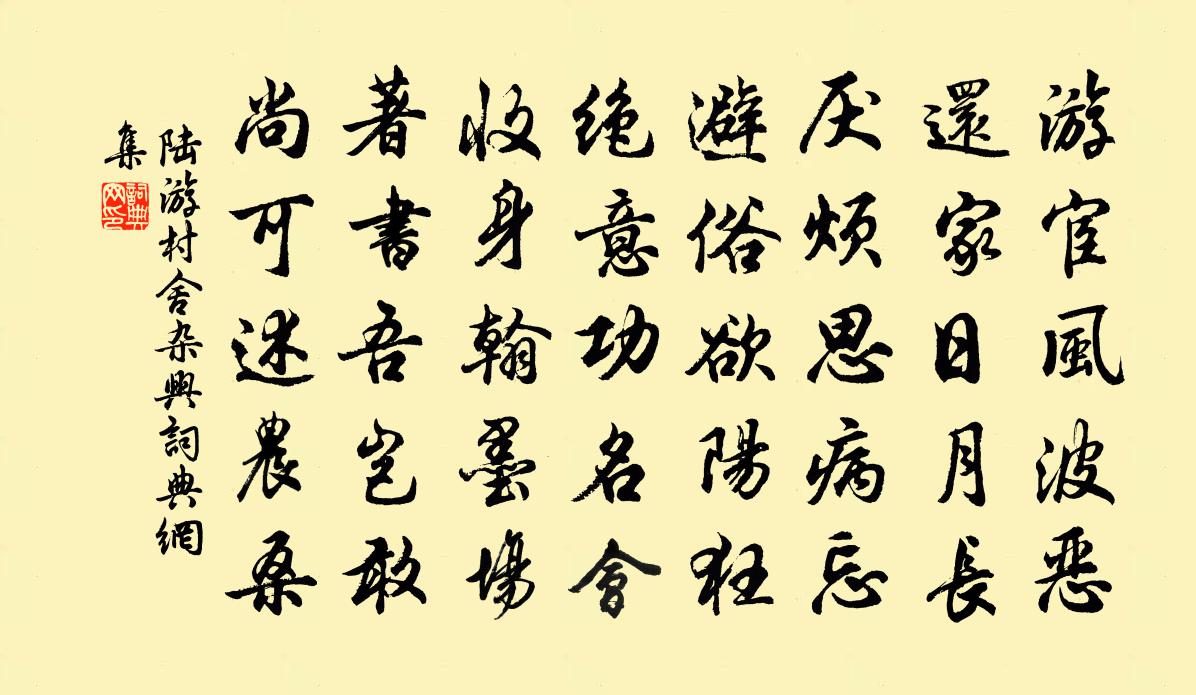 游宦風波惡
還家日月長
厌烦思病忘
避俗欲陽狂
绝意功名會
收身翰墨場
著書吾岂敢
尚可述農桑
陆游村舍杂興詞典網
集
詞典网印